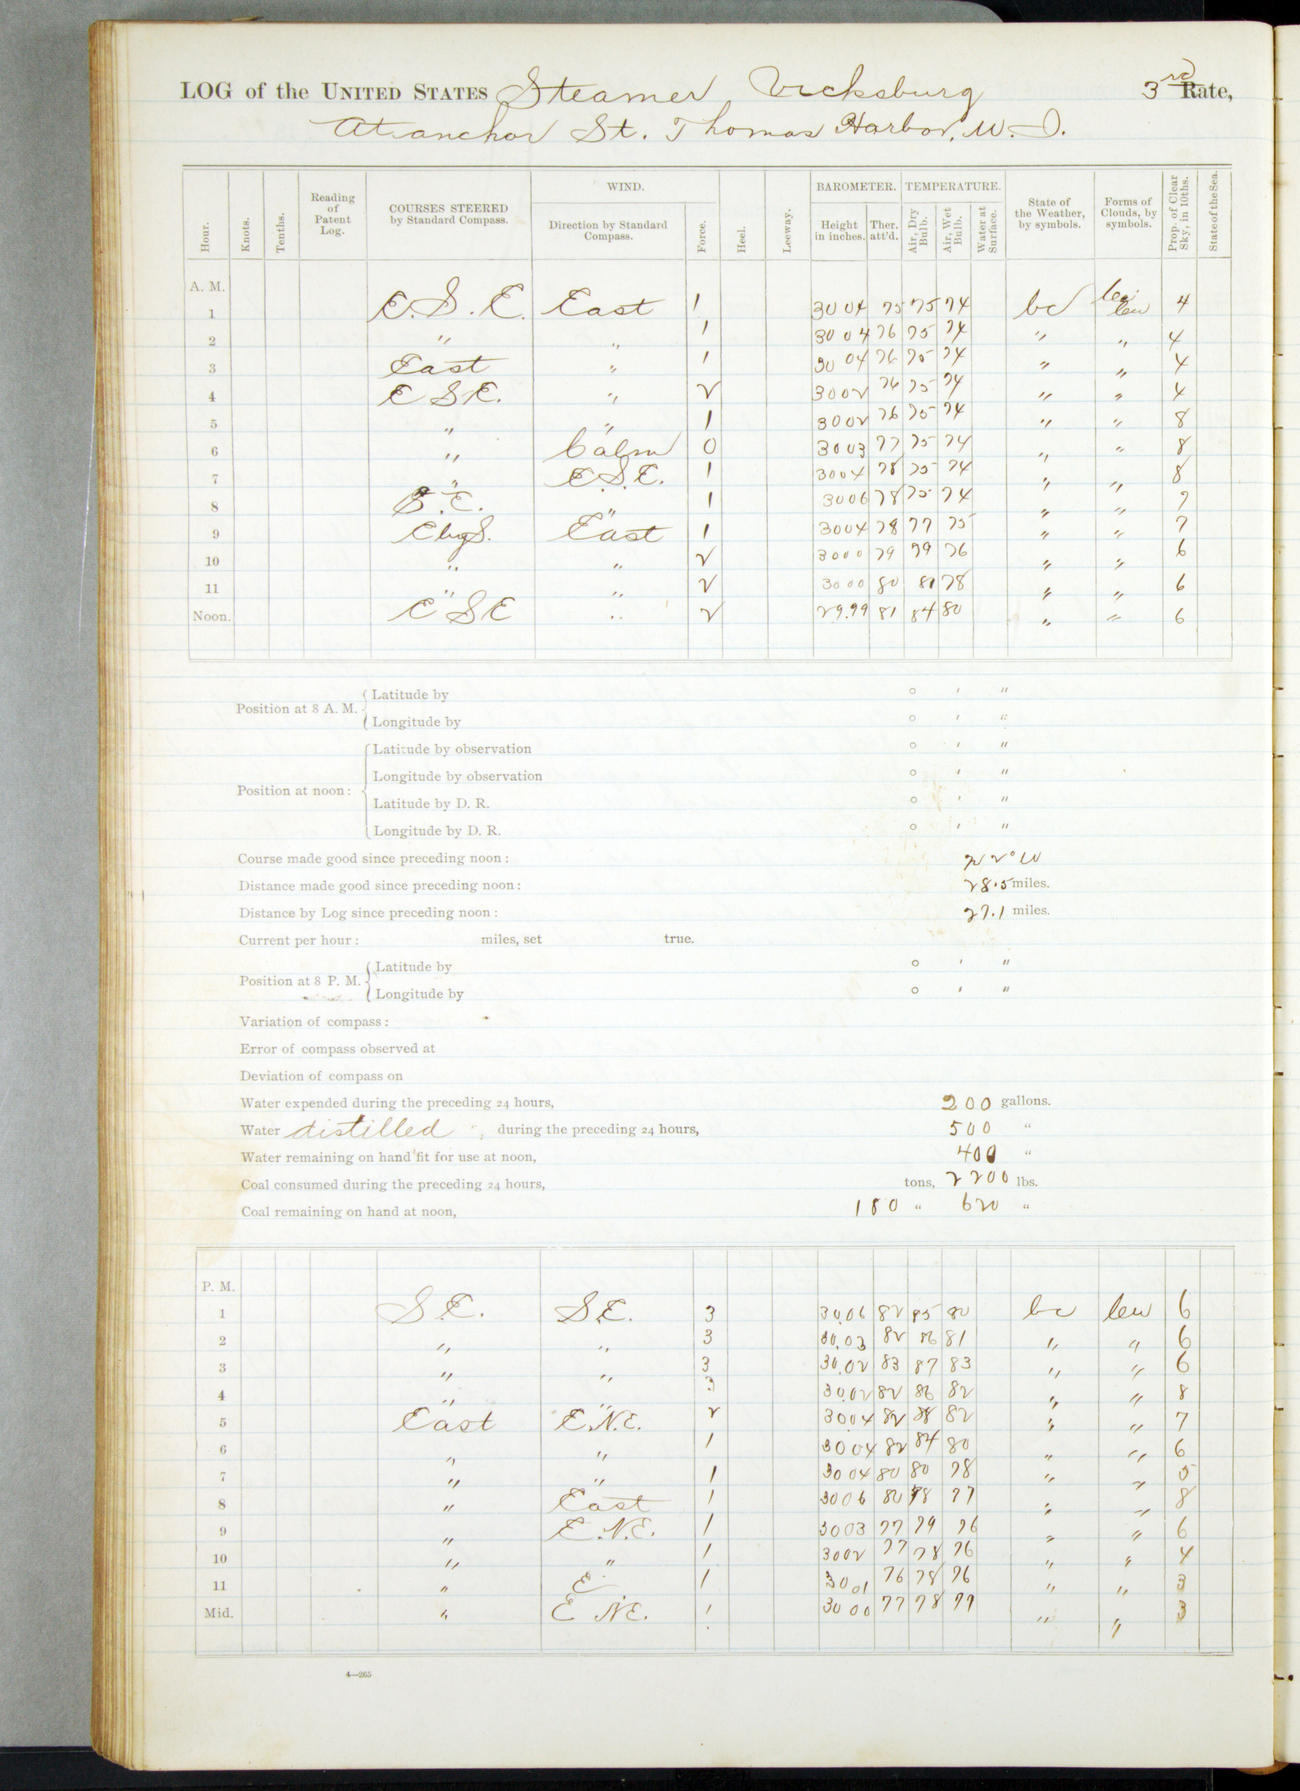 LOG of the UNITED STATES Steamer Vicksburg 3rd Rate,
At anchor St. Thomas Harbor, W. I.
Hour. Knots. Tenths. Reading of Patent Log. COURSES STEERED by Standard Compass. WIND. Direction by Standard Compass. Force. Heel. Leeway. BAROMETER. Height in inches. Ther. att'd. TEMPERATURE. Air, Dry Bulb. Air, Wet Bulb. Water at Surface. State of the Weather, by symbols. Forms of Clouds, by symbols. Prop. of Clear Sky, in 10ths. State of the Sea.
A. M.
1 E.S.E. East 1 30 04 75 75 74 bc 4
2 " " 1 30 04 76 75 74 " " 4
3 East " 1 30 04 76 75 74 " " 4
4 E S E. " 2 30 02 76 75 74 " " 4
5 " " 1 30 02 76 75 74 " " 8
6 " Calm 0 30 03 77 75 74 " " 8
7 " E.S.E. 1 30 04 78 75 74 " " 8
8 S.E. " 1 30 06 78 75 74 " " 7
9 E by S. East 1 30 04 78 77 75 " " 7
10 " " 2 30 00 79 79 76 " " 6
11 " " 2 30 00 80 81 78 " " 6
Noon. E S E " 2 29.99 81 84 80 " " 6
Position at 8 A. M. Latitude by ° ' "
Longitude by ° ' "
Position at noon: Latitude by observation ° ' "
Longitude by observation ° ' "
Latitude by D. R. ° ' "
Longitude by D. R. ° ' "
Course made good since preceding noon: N 2° W
Distance made good since preceding noon: 28.5 miles.
Distance by Log since preceding noon: 27.1 miles.
Current per hour: miles, set true.
Position at 8 P. M. Latitude by ° ' "
Longitude by ° ' "
Variation of compass:
Error of compass observed at
Deviation of compass on
Water expended during the preceding 24 hours, 200 gallons.
Water distilled during the preceding 24 hours, 500 "
Water remaining on hand fit for use at noon, 400 "
Coal consumed during the preceding 24 hours, tons, 2200 lbs.
Coal remaining on hand at noon, 180 " 620 "
P. M.
1 S.E. S.E. 3 30.06 82 85 80 bc cu 6
2 " " 3 30.03 82 86 81 " " 6
3 " " 3 30.02 83 87 83 " " 6
4 " " 3 30.02 82 86 82 " " 8
5 East E.N.E. 2 30.04 82 88 82 " " 7
6 " " 1 30 04 82 84 80 " " 6
7 " " 1 30 04 80 80 78 " " 5
8 " East 1 30 06 80 78 77 " " 8
9 " E.N.E. 1 30 03 77 79 76 " " 6
10 " " 1 30 02 77 78 76 " " 4
11 " E 1 30 01 76 78 76 " " 3
Mid. " E NE. 1 30 00 77 78 77 " " 3
4—265